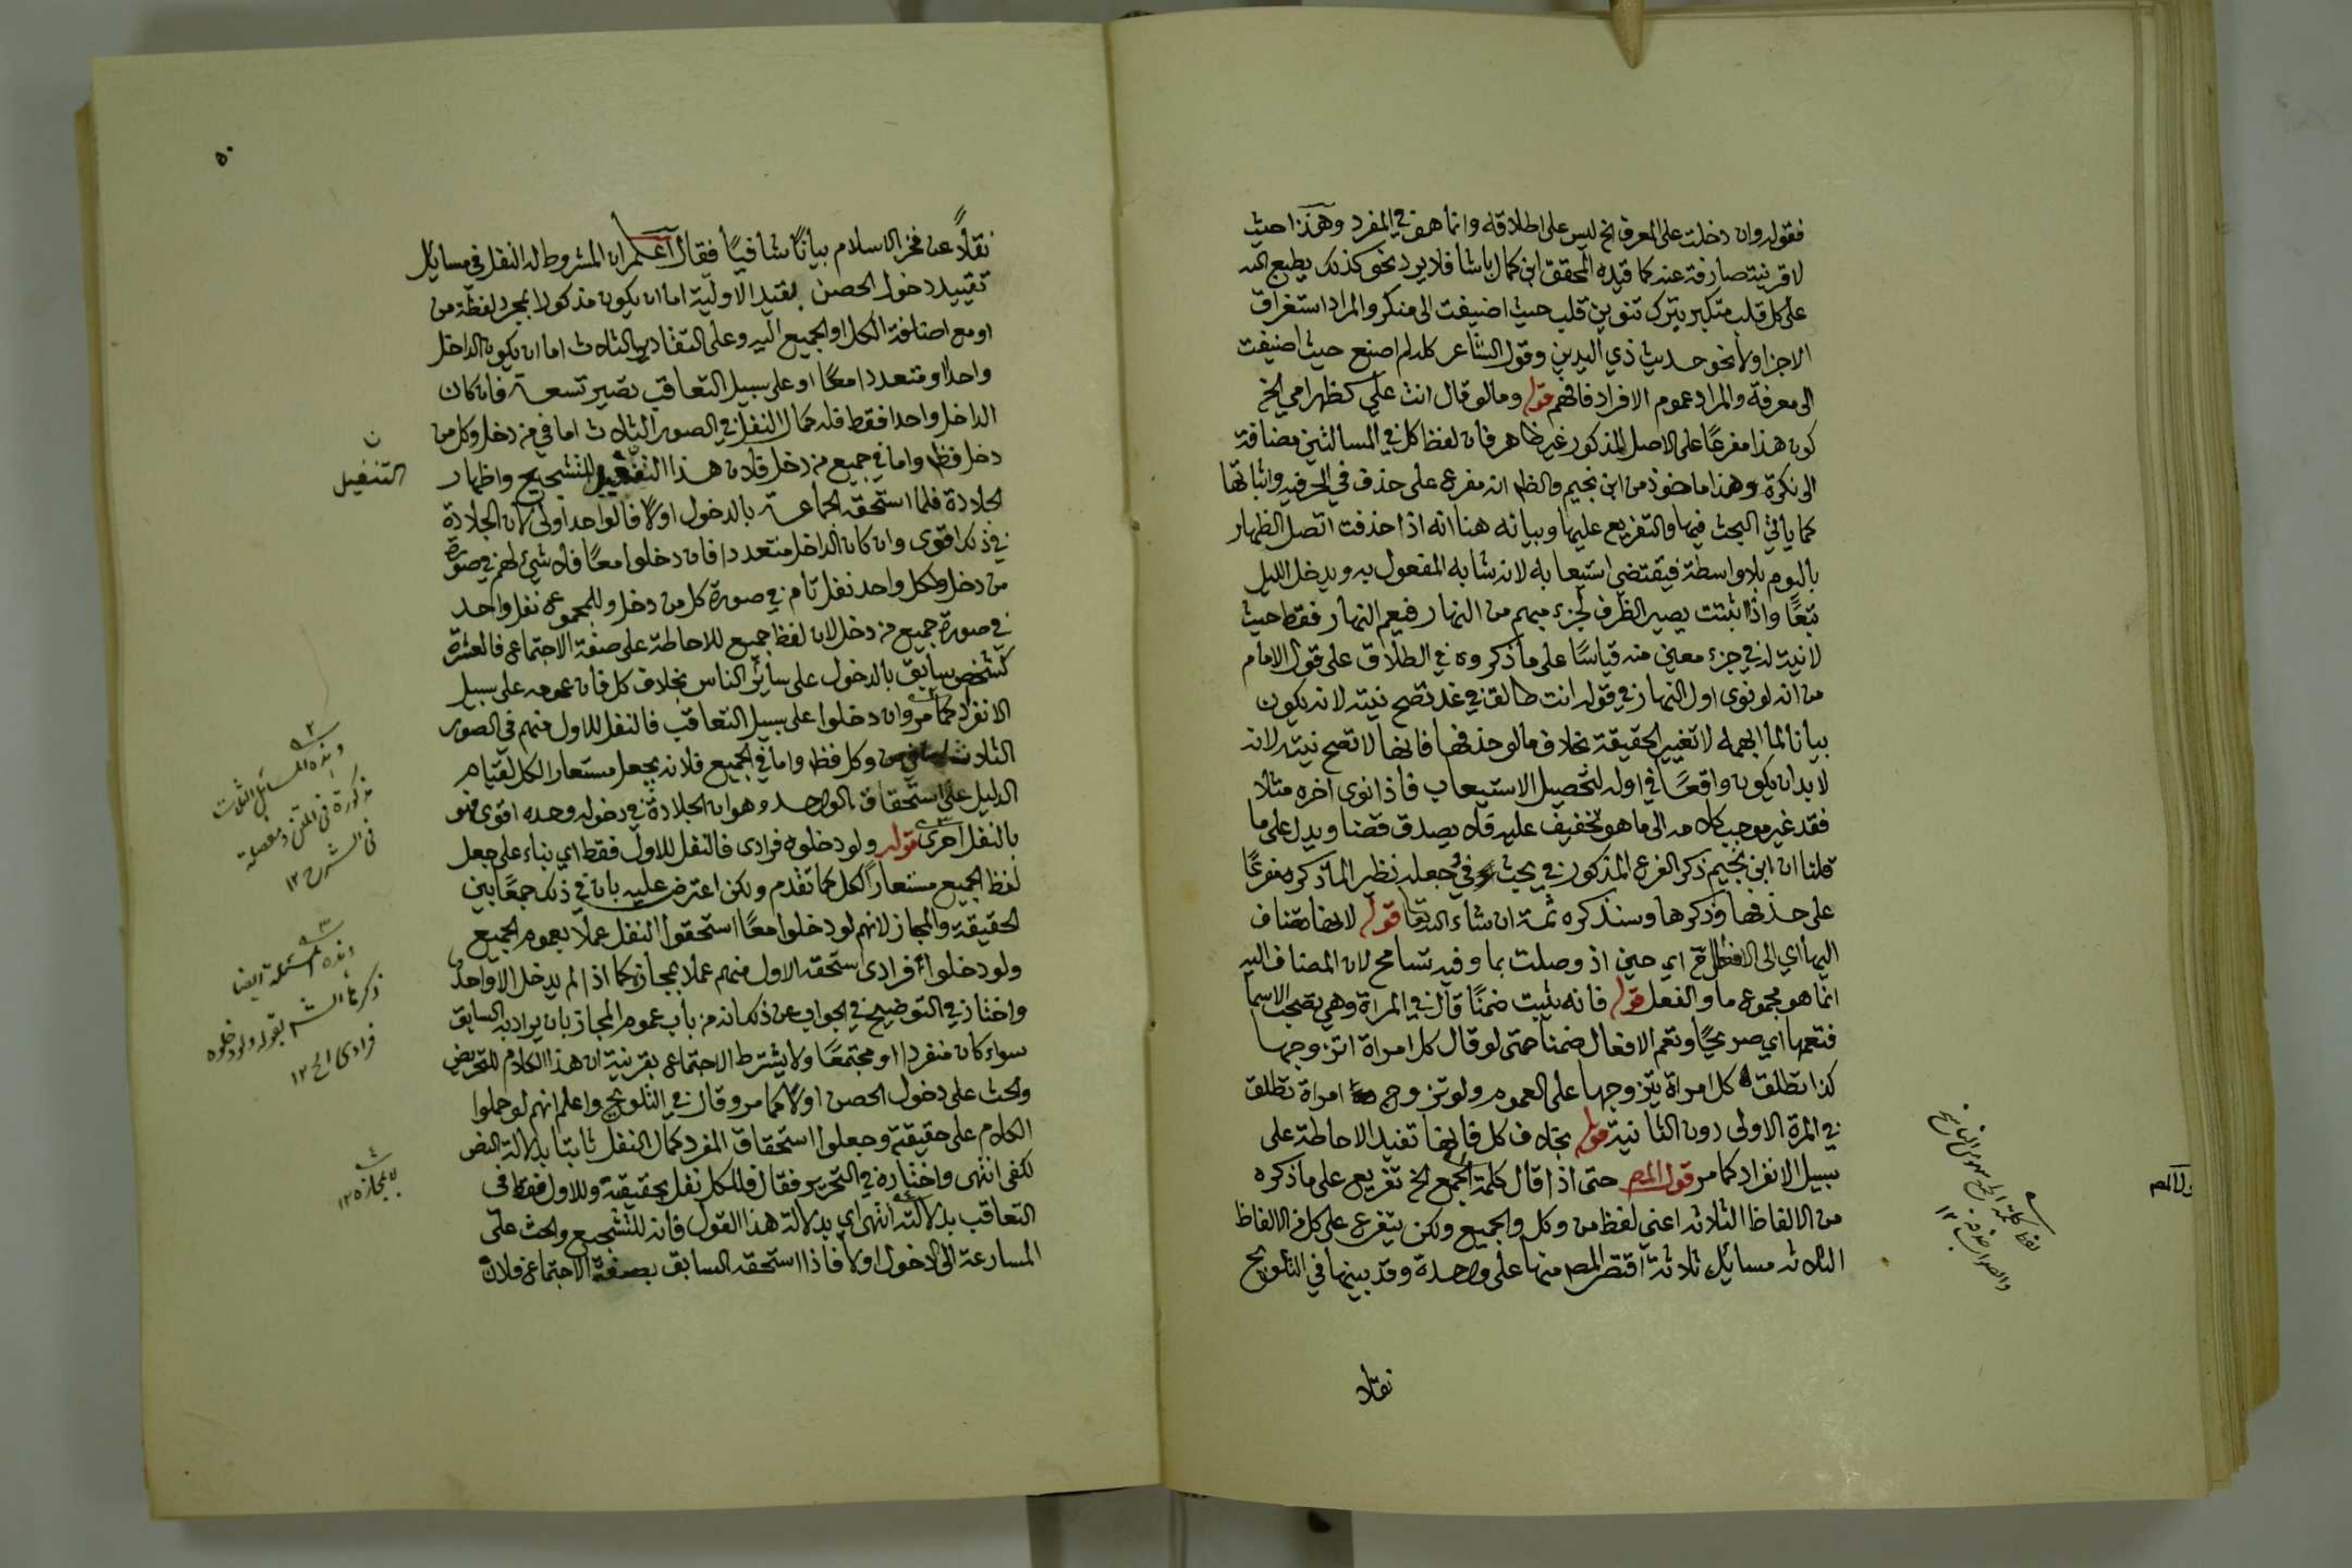 فقوله وان دخلت على المعرف الخ ليس على اطلاقه وانما هو في المفرد وهذا حيث
لا قرينة صارفة عنه كما قيده المحقق ابن كمال باشا فلا يرد نحو كذلك يطبع الله
على كل قلب متكبر بترك تنوين قلب حيث اضيفت الى منكر والمراد استغراق
الاجزا ولا نحو حديث ذي اليدين وقول الشاعر كله لم اصنع حيث اضيفت
الى معرفة والمراد عموم الافراد فافهم قوله وما لو قال انت علي كظهر امي الخ
كون هذا مفرعًا على الاصل المذكور غير ظاهر فان لفظ كل في المسالتين مضافة
الى نكرة وهذا ماخوذ من ابن نجيم والظ انه مفرع على حذف في الحرفية واثباتها
كما ياتي البحث فيها والتفريع عليها وبيانه هنا انه اذا حذفت اتصل الظهار
باليوم بلا واسطة فيقتضي استيعابه لانه شابه المفعول به ويدخل الليل
تبعًا واذا اثبتت يصير الظرف لجزء مبهم من النهار فيعم النهار فقط حيث
لا نية له في جزء معين منه قياسًا على ما ذكروه في الطلاق على قول الامام
من انه لو نوى اول النهار في قوله انت طالق في غد تصح نيته لانه يكون
بيانا لما ابهمه لا تغيير الحقيقة بخلاف ما لو حذفها فانها لا تصح نيته لانه
لا بد ان يكون واقعًا في اوله لتحصيل الاستيعاب فاذا نوى اخره مثلًا
فقد غير موجب كلامه الى ما هو تخفيف عليه فلا يصدق قضا ويدل على ما
قلنا ان ابن نجيم ذكر الفرع المذكور في بحث في وجعله نظير المذكره مفرعًا
على حذفها وذكرها وسنذكره ثمة ان شاء الله تعا قوله لانها تضاف
اليها اي الى الافعال ح اي حين اذ وصلت بما وفيه تسامح لان المضاف اليه
انما هو مجموع ما والفعل قوله فانه يثبت ضمنًا قال في المراة وهي تصحب الاسما
فتعمها اي صريحًا وتعم الافعال ضمنًا حتى لو قال كل امراة اتزوجها
كذا تطلق كل امراة يتزوجها على العموم ولو تزوج امراة تطلق
في المرة الاولى دون الثانية قوله بخلاف كل فانها تفيد الاحاطة على
سبيل الانفراد كما مر قول المص حتى اذا قال كلمة الجمع الخ تفريع على ما ذكره
من الالفاظ الثلاثه اعني لفظ من وكل والجميع ولكن يتفرع على كل من الالفاظ
الثلاثه مسائل ثلاثة اقتصر المص منها على واحدة وقد بينها في التلويح
نقلا
٥٠
نقلًا عن فخر الاسلام بيانًا شافيًا فقال اعلم ان المشروط له النفل في مسايل
تقييد دخول الحصن بقيد الاولية اما ان يكون مذكورا بمجرد لفظة من
او مع اضافة الكل او الجميع اليه وعلى التقادير الثلاث اما ان يكون الداخل
واحدا او متعددا معًا او على سبيل التعاقب تصير تسعة فان كان
الداخل واحدا فقط فله كمال النفل في الصور الثلاث اما في من دخل وكل من
دخل فظ واما في جميع من دخل فلان هذا التنفيل للتشجيع واظهار
الجلادة فلما استحقه الجماعة بالدخول اولًا فالواحد اولى لان الجلادة
في ذلك اقوى وان كان الداخل متعددا فان دخلوا معًا فلا شيء لهم في صورة
من دخل ولكل واحد نفل تام في صورة كل من دخل وللمجموع نفل واحد
في صورة جميع من دخل لان لفظ جميع للاحاطة على صفة الاجتماع فالعشرة
كشخص سابق بالدخول على سائر الناس بخلاف كل فان عمومه على سبيل
الانفراد كما مر وان دخلوا على سبيل التعاقب فالنفل للاول منهم في الصور
الثلاث اما في من وكل فظ واما في الجميع فلانه يجعل مستعارا لكل لقيام
الدليل على استحقاق الواحد وهو ان الجلادة في دخوله وحده اقوى فهو
بالنفل احرى قوله ولو دخلوه فرادى فالنفل للاول فقط اي بناء على جعل
لفظ الجميع مستعارا لكل كما تقدم ولكن اعترض عليه بان في ذلك جمعًا بين
الحقيقة والمجاز لانهم لو دخلوا معًا استحقوا النفل عملًا بعموم الجميع
ولو دخلوا فرادى استحقه الاول منهم عملا بمجازه كما اذا لم يدخل الا واحد
واختار في التوضيح في الجواب عن ذلك انه من باب عموم المجاز بان يراد به السابق
سواء كان منفردا او مجتمعًا ولا يشترط الاجتماع بقرينة ان هذا الكلام للتحريض
والحث على دخول الحصن اولًا كما مر وقال في التلويح واعلم انهم لو حملوا
الكلام على حقيقته وجعلوا استحقاق المفرد كمال النفل ثابتا بدلالة النص
لكفى انتهى واختاره في التحرير فقال فللكل نفل بحقيقته وللاول فقط في
التعاقب بدلالته انتهى اي بدلالة هذا القول فانه للتشجيع والحث على
المسارعة الى الدخول اولًا فاذا استحقه السابق بصفة الاجتماع فلان
ن
التنفيل
٢
وهذه المسائل الثلاث
مذكورة في المتن ومفصلة
في الشرح ١٢
٣
وهذه المسئلة ايضا
ذكرها الش بقوله ولو دخلوه
فرادى الخ ١٢
٤
لا بمجازه ١٢